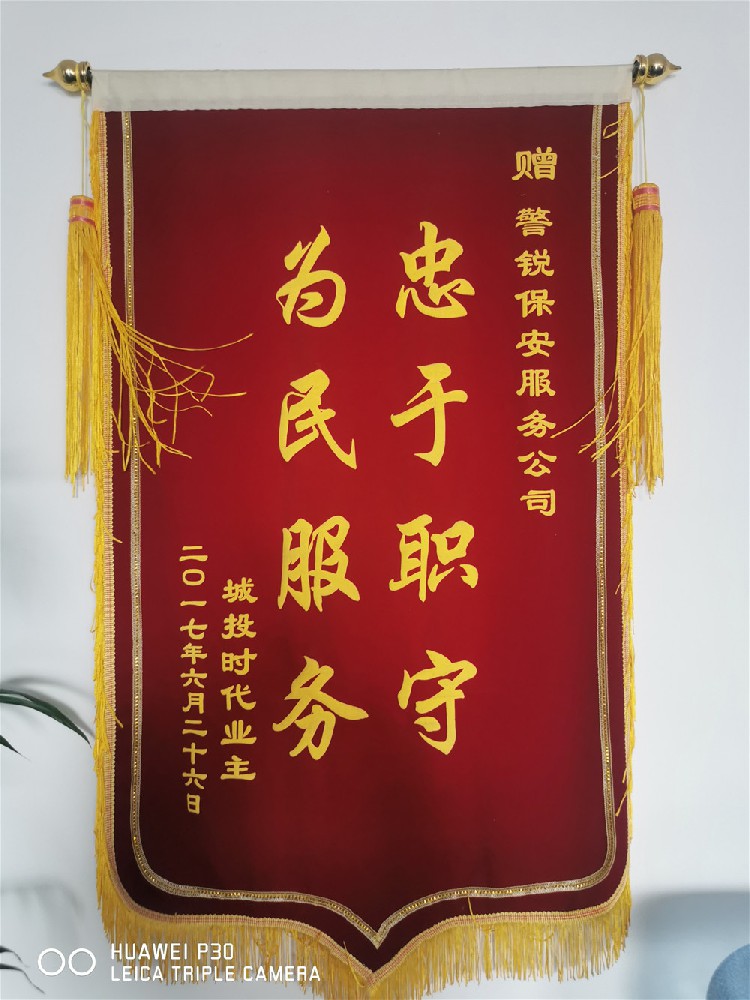 赠 警锐保安服务公司
忠于职守
为民服务
城投时代业主
二〇一七年六月二十六日
HUAWEI P30
LEICA TRIPLE CAMERA